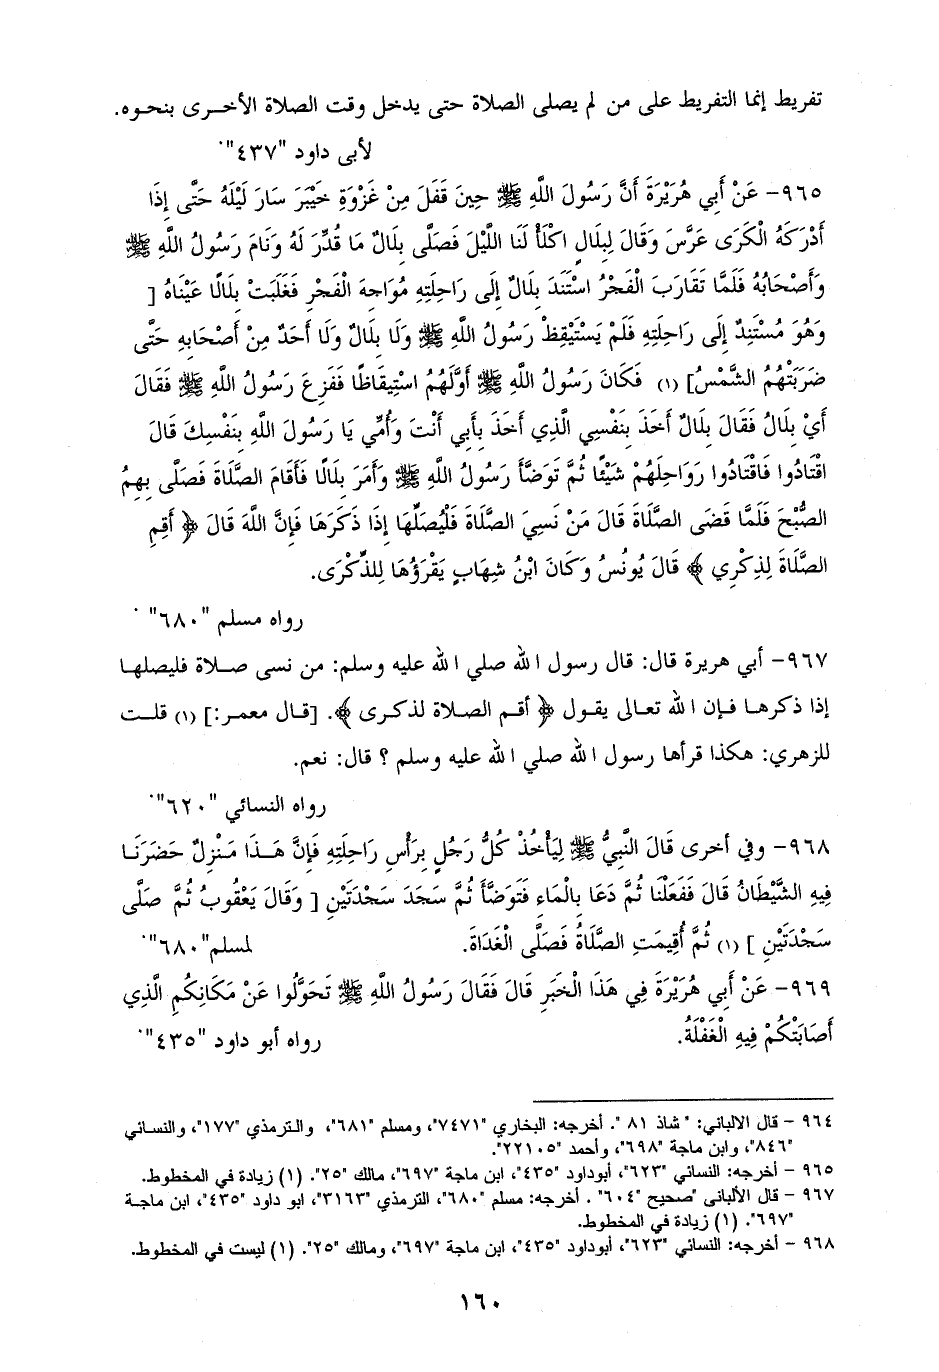 تفريط إنما التفريط على من لم يصلى الصلاة حتى يدخل وقت الصلاة الأخـرى بنحـوه.
لأبى داود "٤٣٧".
٩٦٥- عَنْ أَبِي هُرَيْرَةَ أَنَّ رَسُولَ اللَّهِ ﷺ حِينَ قَفَلَ مِنْ غَزْوَةِ خَيْبَرَ سَارَ لَيْلَهُ حَتَّى إِذَا
أَدْرَكَهُ الْكَرَى عَرَّسَ وَقَالَ لِبِلَالٍ اكْلَأْ لَنَا اللَّيْلَ فَصَلَّى بِلَالٌ مَا قُدِّرَ لَهُ وَنَامَ رَسُولُ اللَّهِ ﷺ
وَأَصْحَابُهُ فَلَمَّا تَقَارَبَ الْفَجْرُ اسْتَنَدَ بِلَالٌ إِلَى رَاحِلَتِهِ مُوَاجِهَ الْفَجْرِ فَغَلَبَتْ بِلَالًا عَيْنَاهُ [
وَهُوَ مُسْتَنِدٌ إِلَى رَاحِلَتِهِ فَلَمْ يَسْتَيْقِظْ رَسُولُ اللَّهِ ﷺ وَلَا بِلَالٌ وَلَا أَحَدٌ مِنْ أَصْحَابِهِ حَتَّى
ضَرَبَتْهُمُ الشَّمْسُ] (١) فَكَانَ رَسُولُ اللَّهِ ﷺ أَوَّلَهُمُ اسْتِيقَاظًا فَفَزِعَ رَسُولُ اللَّهِ ﷺ فَقَالَ
أَيْ بِلَالُ فَقَالَ بِلَالٌ أَخَذَ بِنَفْسِي الَّذِي أَخَذَ بِأَبِي أَنْتَ وَأُمِّي يَا رَسُولَ اللَّهِ بِنَفْسِكَ قَالَ
اقْتَادُوا فَاقْتَادُوا رَوَاحِلَهُمْ شَيْئًا ثُمَّ تَوَضَّأَ رَسُولُ اللَّهِ ﷺ وَأَمَرَ بِلَالًا فَأَقَامَ الصَّلَاةَ فَصَلَّى بِهِمُ
الصُّبْحَ فَلَمَّا قَضَى الصَّلَاةَ قَالَ مَنْ نَسِيَ الصَّلَاةَ فَلْيُصَلِّهَا إِذَا ذَكَرَهَا فَإِنَّ اللَّهَ قَالَ ﴿ أَقِمِ
الصَّلَاةَ لِذِكْرِي ﴾ قَالَ يُونُسُ وَكَانَ ابْنُ شِهَابٍ يَقْرَؤُهَا لِلذِّكْرَى.
رواه مسلم "٦٨٠".
٩٦٧- أبي هريرة قال: قال رسول الله صلي الله عليه وسلم: من نسى صـلاة فليصلهـا
إذا ذكرهـا فـإن الله تعـالى يقـول ﴿ أقـم الصـلاة لذكـرى ﴾. [قـال معمـر:] (١) قلـت
للزهري: هكذا قرأها رسول الله صلي الله عليه وسلم ؟ قال: نعم.
رواه النسائي "٦٢٠".
٩٦٨- وفي أخرى قَالَ النَّبِيُّ ﷺ لِيَأْخُذْ كُلُّ رَجُلٍ بِرَأْسِ رَاحِلَتِهِ فَإِنَّ هَـذَا مَـنْزِلٌ حَضَرَنَـا
فِيهِ الشَّيْطَانُ قَالَ فَفَعَلْنَا ثُمَّ دَعَا بِالْمَاءِ فَتَوَضَّأَ ثُمَّ سَجَدَ سَجْدَتَيْنِ [ وَقَالَ يَعْقُوبُ ثُمَّ صَلَّى
سَجْدَتَيْنِ ] (١) ثُمَّ أُقِيمَتِ الصَّلَاةُ فَصَلَّى الْغَدَاةَ. لمسلم"٦٨٠".
٩٦٩- عَنْ أَبِي هُرَيْرَةَ فِي هَذَا الْخَبَرِ قَالَ فَقَالَ رَسُولُ اللَّهِ ﷺ تَحَوَّلُوا عَنْ مَكَانِكُمِ الَّذِي
أَصَابَتْكُمْ فِيهِ الْغَفْلَةُ. رواه أبو داود "٤٣٥".
٩٦٤ - قال الالباني: "شاذ ٨١ ". أخرجه: البخاري "٧٤٧١"، ومسلم "٦٨١"، والترمذي "١٧٧"، والنسائي
"٨٤٦"، وابن ماجة "٦٩٨"، وأحمد "٢٢١٠٥".
٩٦٥ - أخرجه: النسائي "٦٢٣"، أبوداود "٤٣٥"، ابن ماجة "٦٩٧"، مالك "٢٥". (١) زيادة في المخطوط.
٩٦٧ - قال الألبانى "صحيح "٦٠٤" . أخرجه: مسلم "٦٨٠"، الترمذي "٣١٦٣"، ابو داود "٤٣٥"، ابن ماجـة
"٦٩٧". (١) زيادة في المخطوط.
٩٦٨ - أخرجه: النسائي "٦٢٣"، أبوداود "٤٣٥"، ابن ماجة "٦٩٧"، ومالك "٢٥". (١) ليست في المخطوط.
١٦٠